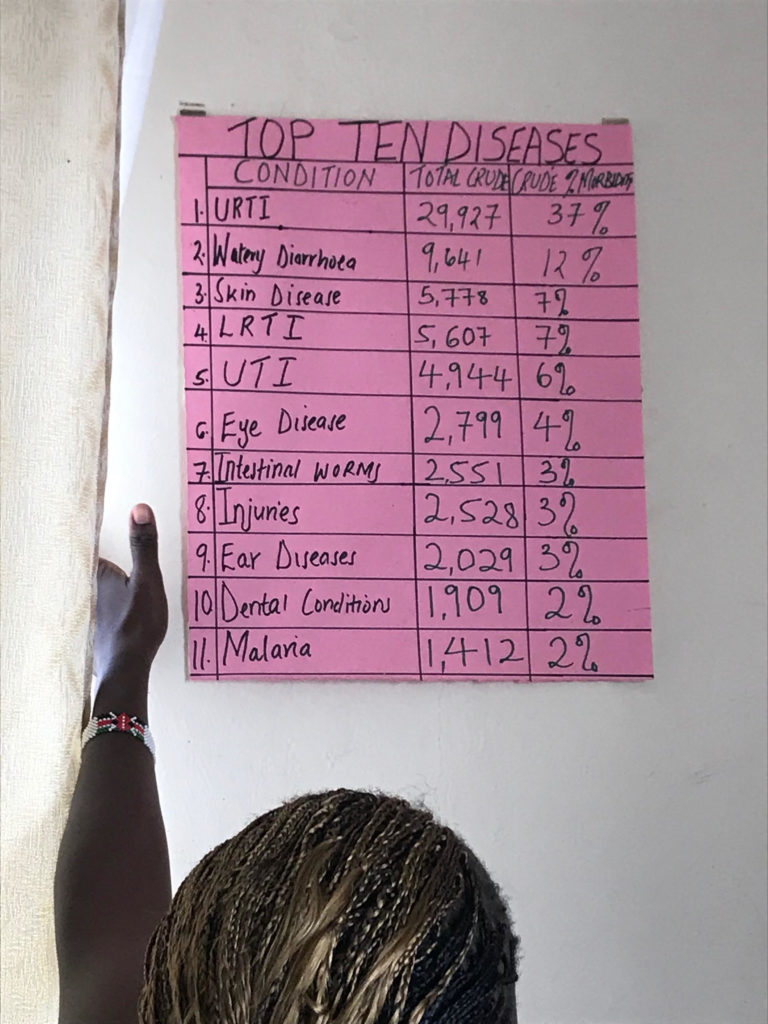 TOP TEN DISEASES
CONDITION TOTAL CRUDE CRUDE % MORBIDITY
1. URTI 29,927 37%
2. Watery Diarrhoea 9,641 12%
3. Skin Disease 5,778 7%
4. LRTI 5,607 7%
5. UTI 4,944 6%
6. Eye Disease 2,799 4%
7. Intestinal WORMS 2,551 3%
8. Injuries 2,528 3%
9. Ear Diseases 2,029 3%
10 Dental Conditions 1,909 2%
11. Malaria 1,412 2%